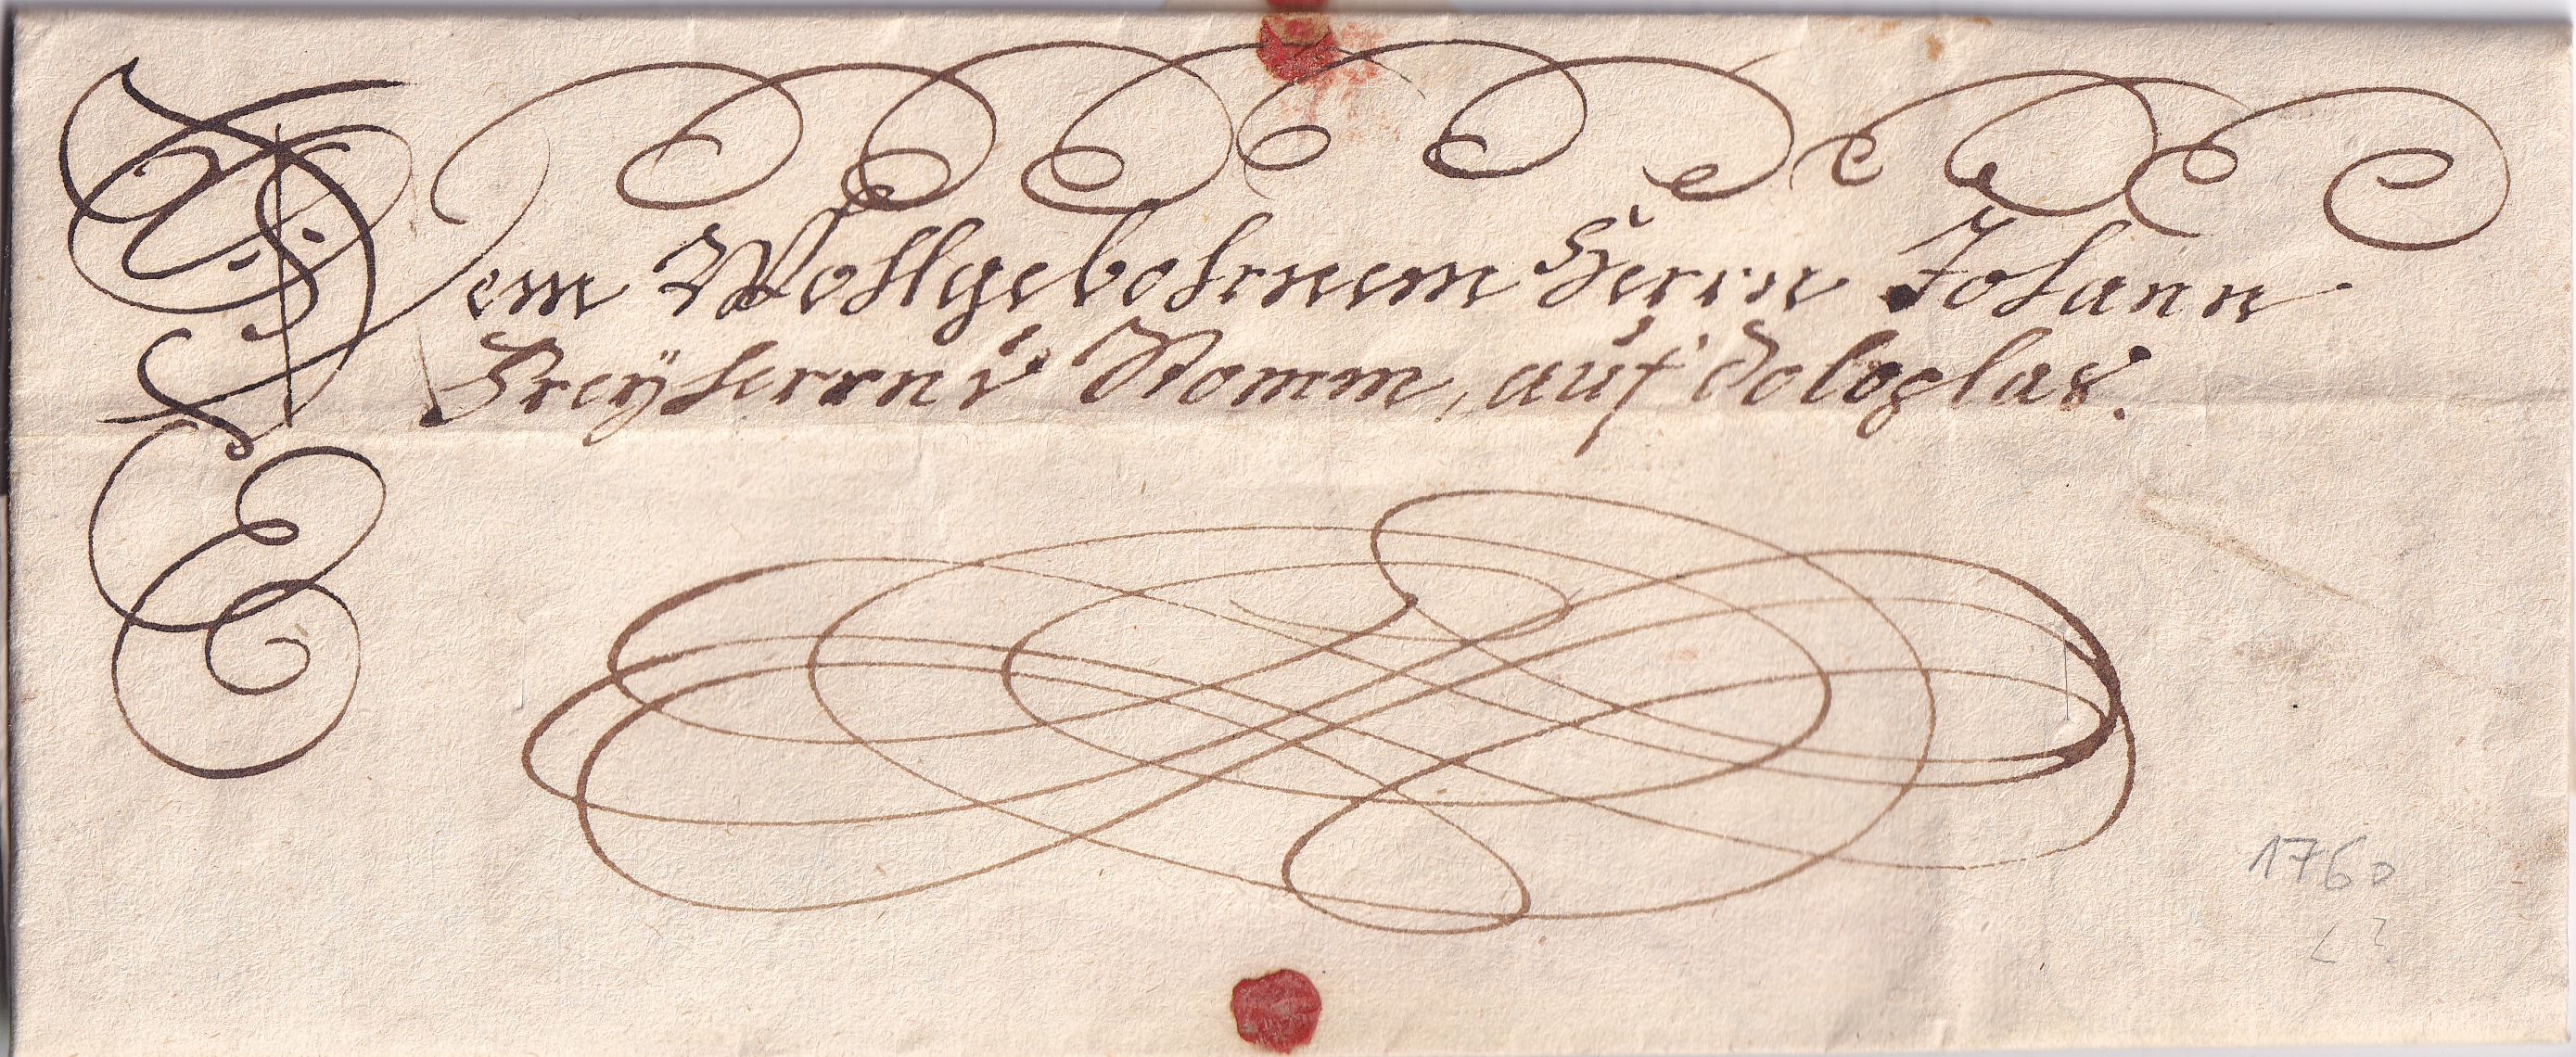 Dem Wohlgebohrnem Herrn Johann
Freÿherrn v Ramm, auf Doloplas.
1760